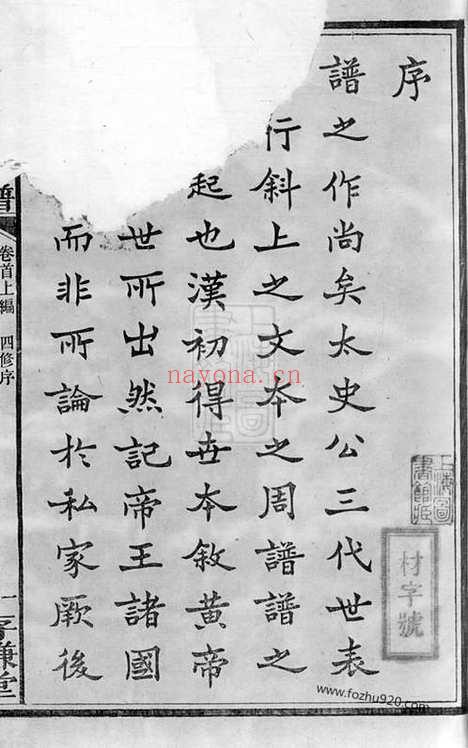 序
譜之作尚矣太史公三代世表
行斜上之文本之周譜譜之
起也漢初得世本敘黃帝
世所出然記帝王諸國
而非所論於私家厥後
譜
卷首上編 四修序
謙堂
上海圖書館藏
材字號
nayona.cn
www.fozhu920.com